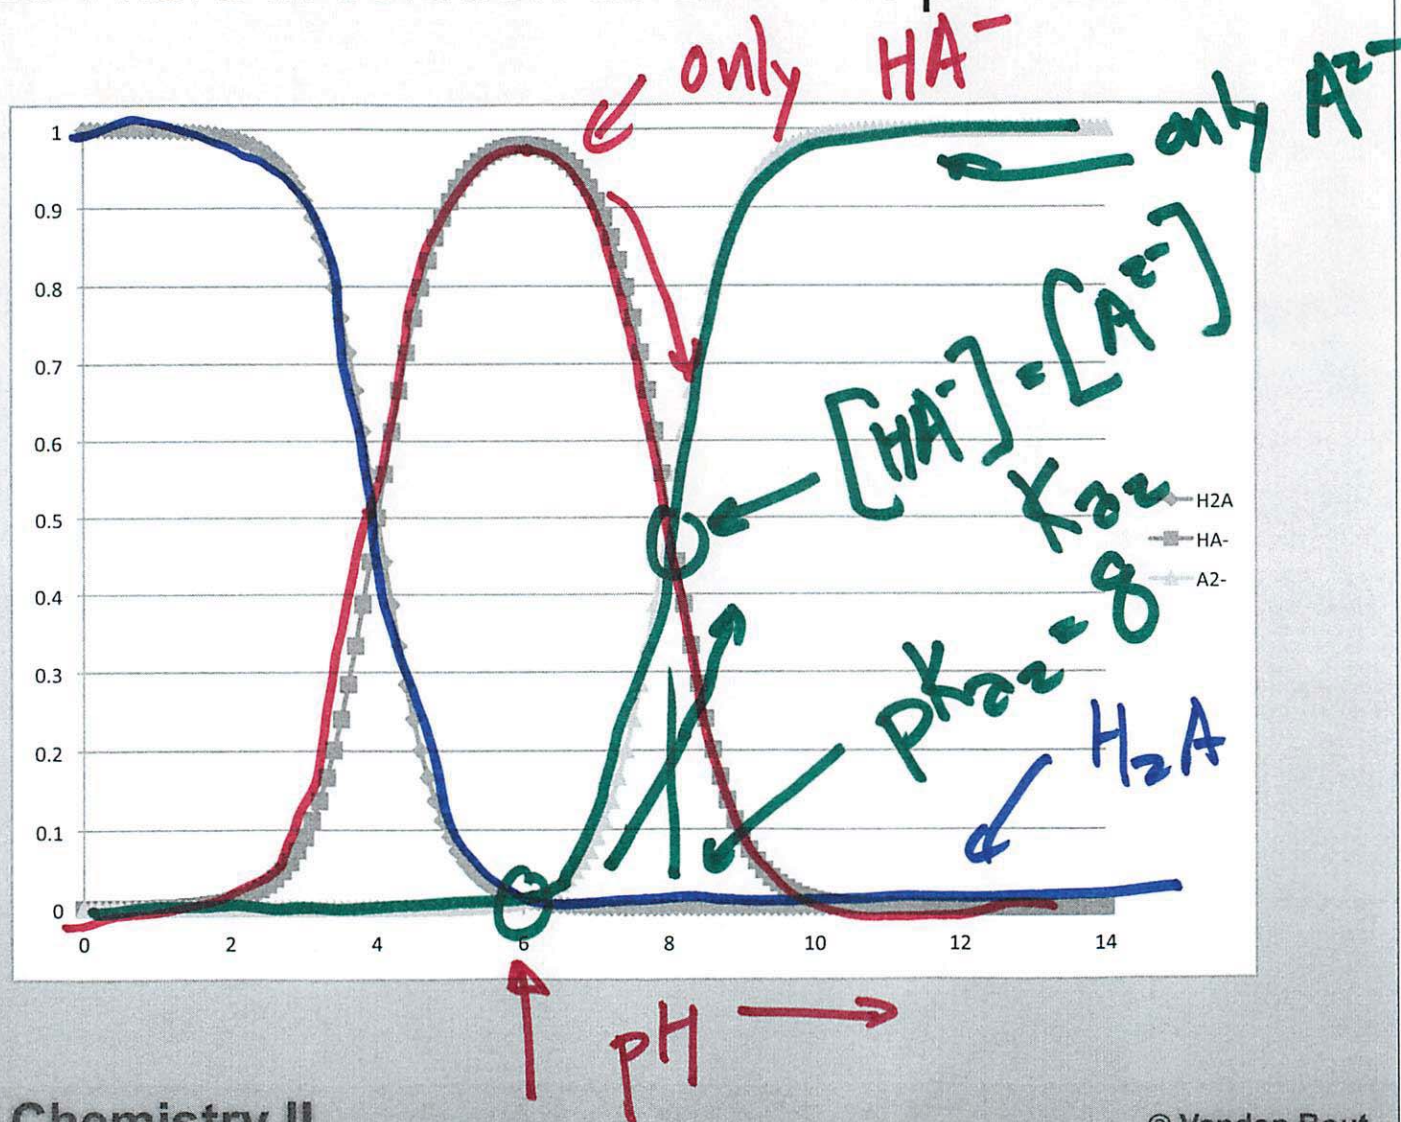 only HA⁻
only A²⁻
1
0.9
0.8
0.7
0.6
0.5
0.4
0.3
0.2
0.1
0
0 2 4 6 8 10 12 14
[HA⁻] = [A²⁻]
Ka2
pKa2 = 8
H2A
HA-
A2-
H₂A
pH
Chemistry II
© Vanden Bout